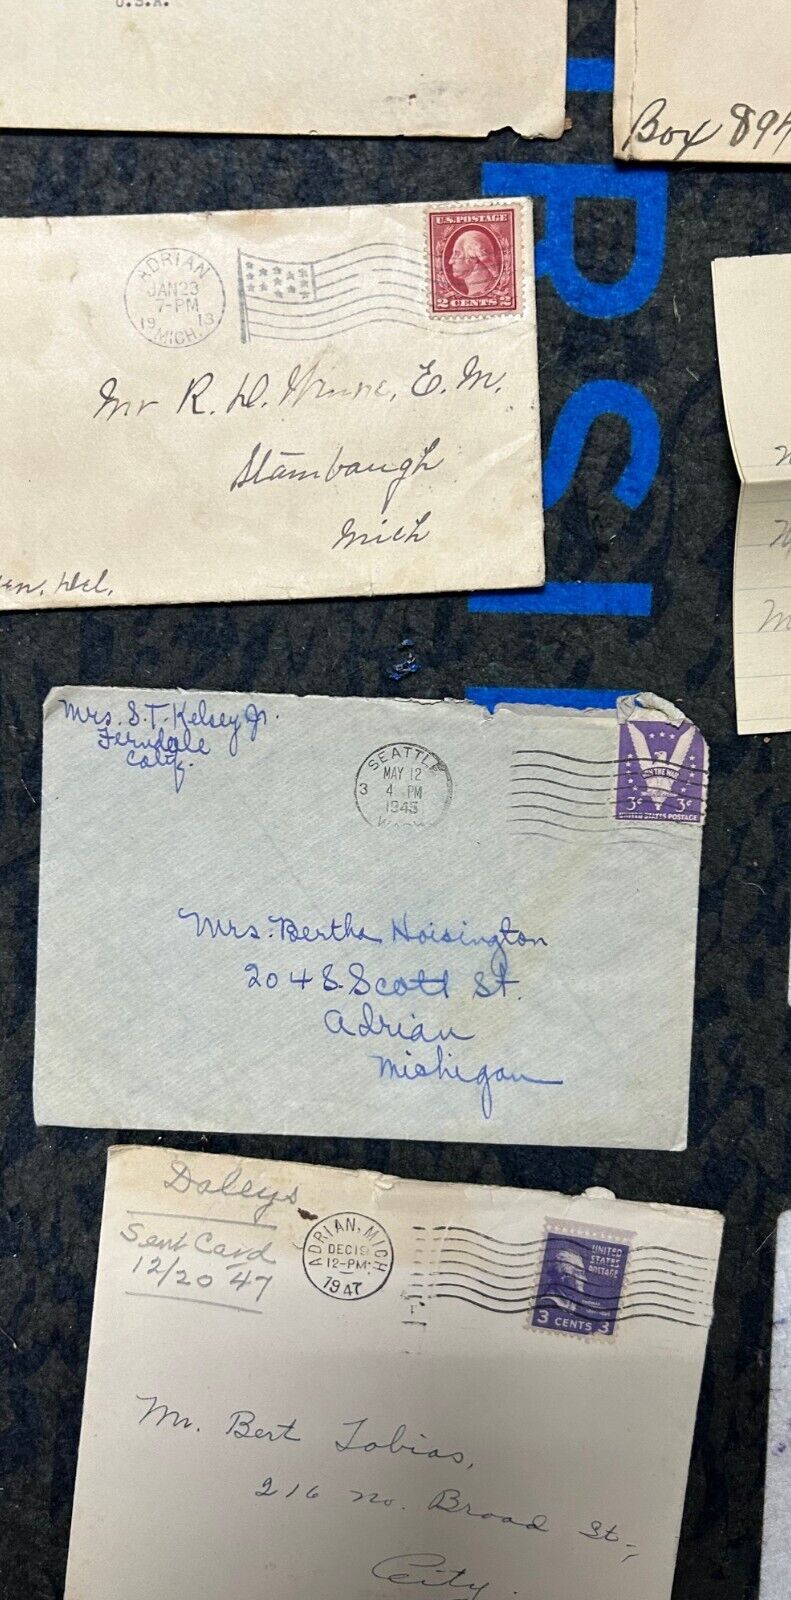 U.S.A.
Box 894
ADRIAN
JAN 23
7-PM
1913
MICH.
U.S. POSTAGE
2 CENTS 2
Mr R. H.
E. M.
Stambaugh
Mich
Del.
Mrs. S. T. Kelsey Jr.
Ferndale
Calif.
SEATTLE
MAY 12
3 4 PM
1943
WIN THE WAR
3¢ 3¢
UNITED STATES POSTAGE
Mrs. Bertha Hoisington
204 S. Scott St.
Adrian
Mishigan
Daleys
Sent Card
12/20 47
ADRIAN, MICH
DEC 19
12-PM
1947
UNITED
STATES
POSTAGE
THOMAS
3 CENTS 3
Mr. Bert Tobias,
216 No. Broad St.,
City.
RSI